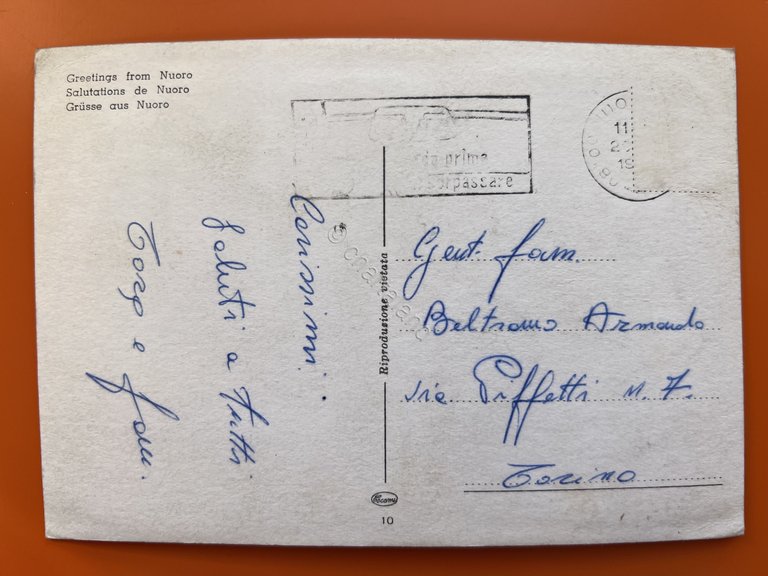 Greetings from Nuoro
Salutations de Nuoro
Grüsse aus Nuoro
prima
sorpassare
11
19
Carissimi
Saluti a tutti
e fam.
Riprodusione vietata
Gent. fam.
Beltramo Armando
via Piffetti n. 7.
Torino
10